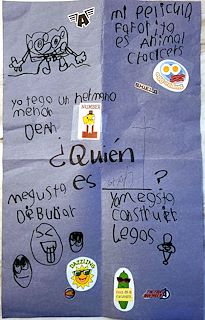 A
mi película
faborito
es animal
crackers
yo tego un hermano
menor
Dean.
NUMBER
¿Quién
es ?
megusta
Dibujar
Y megusta
construir
legos
DAZZLING